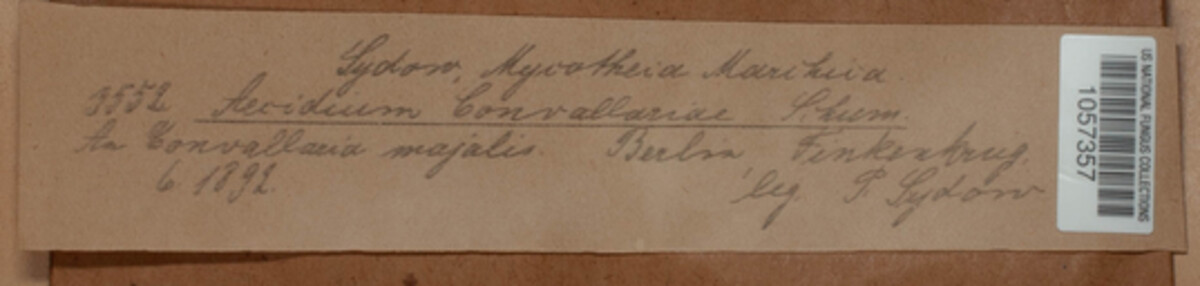 Sydow, Mycotheca Marchica
3552 Aecidium Convallariae Schum.
An Convallaria majalis. Berlin, Finkenkrug.
6 1892. leg. P. Sydow
US NATIONAL FUNGUS COLLECTIONS
1057357